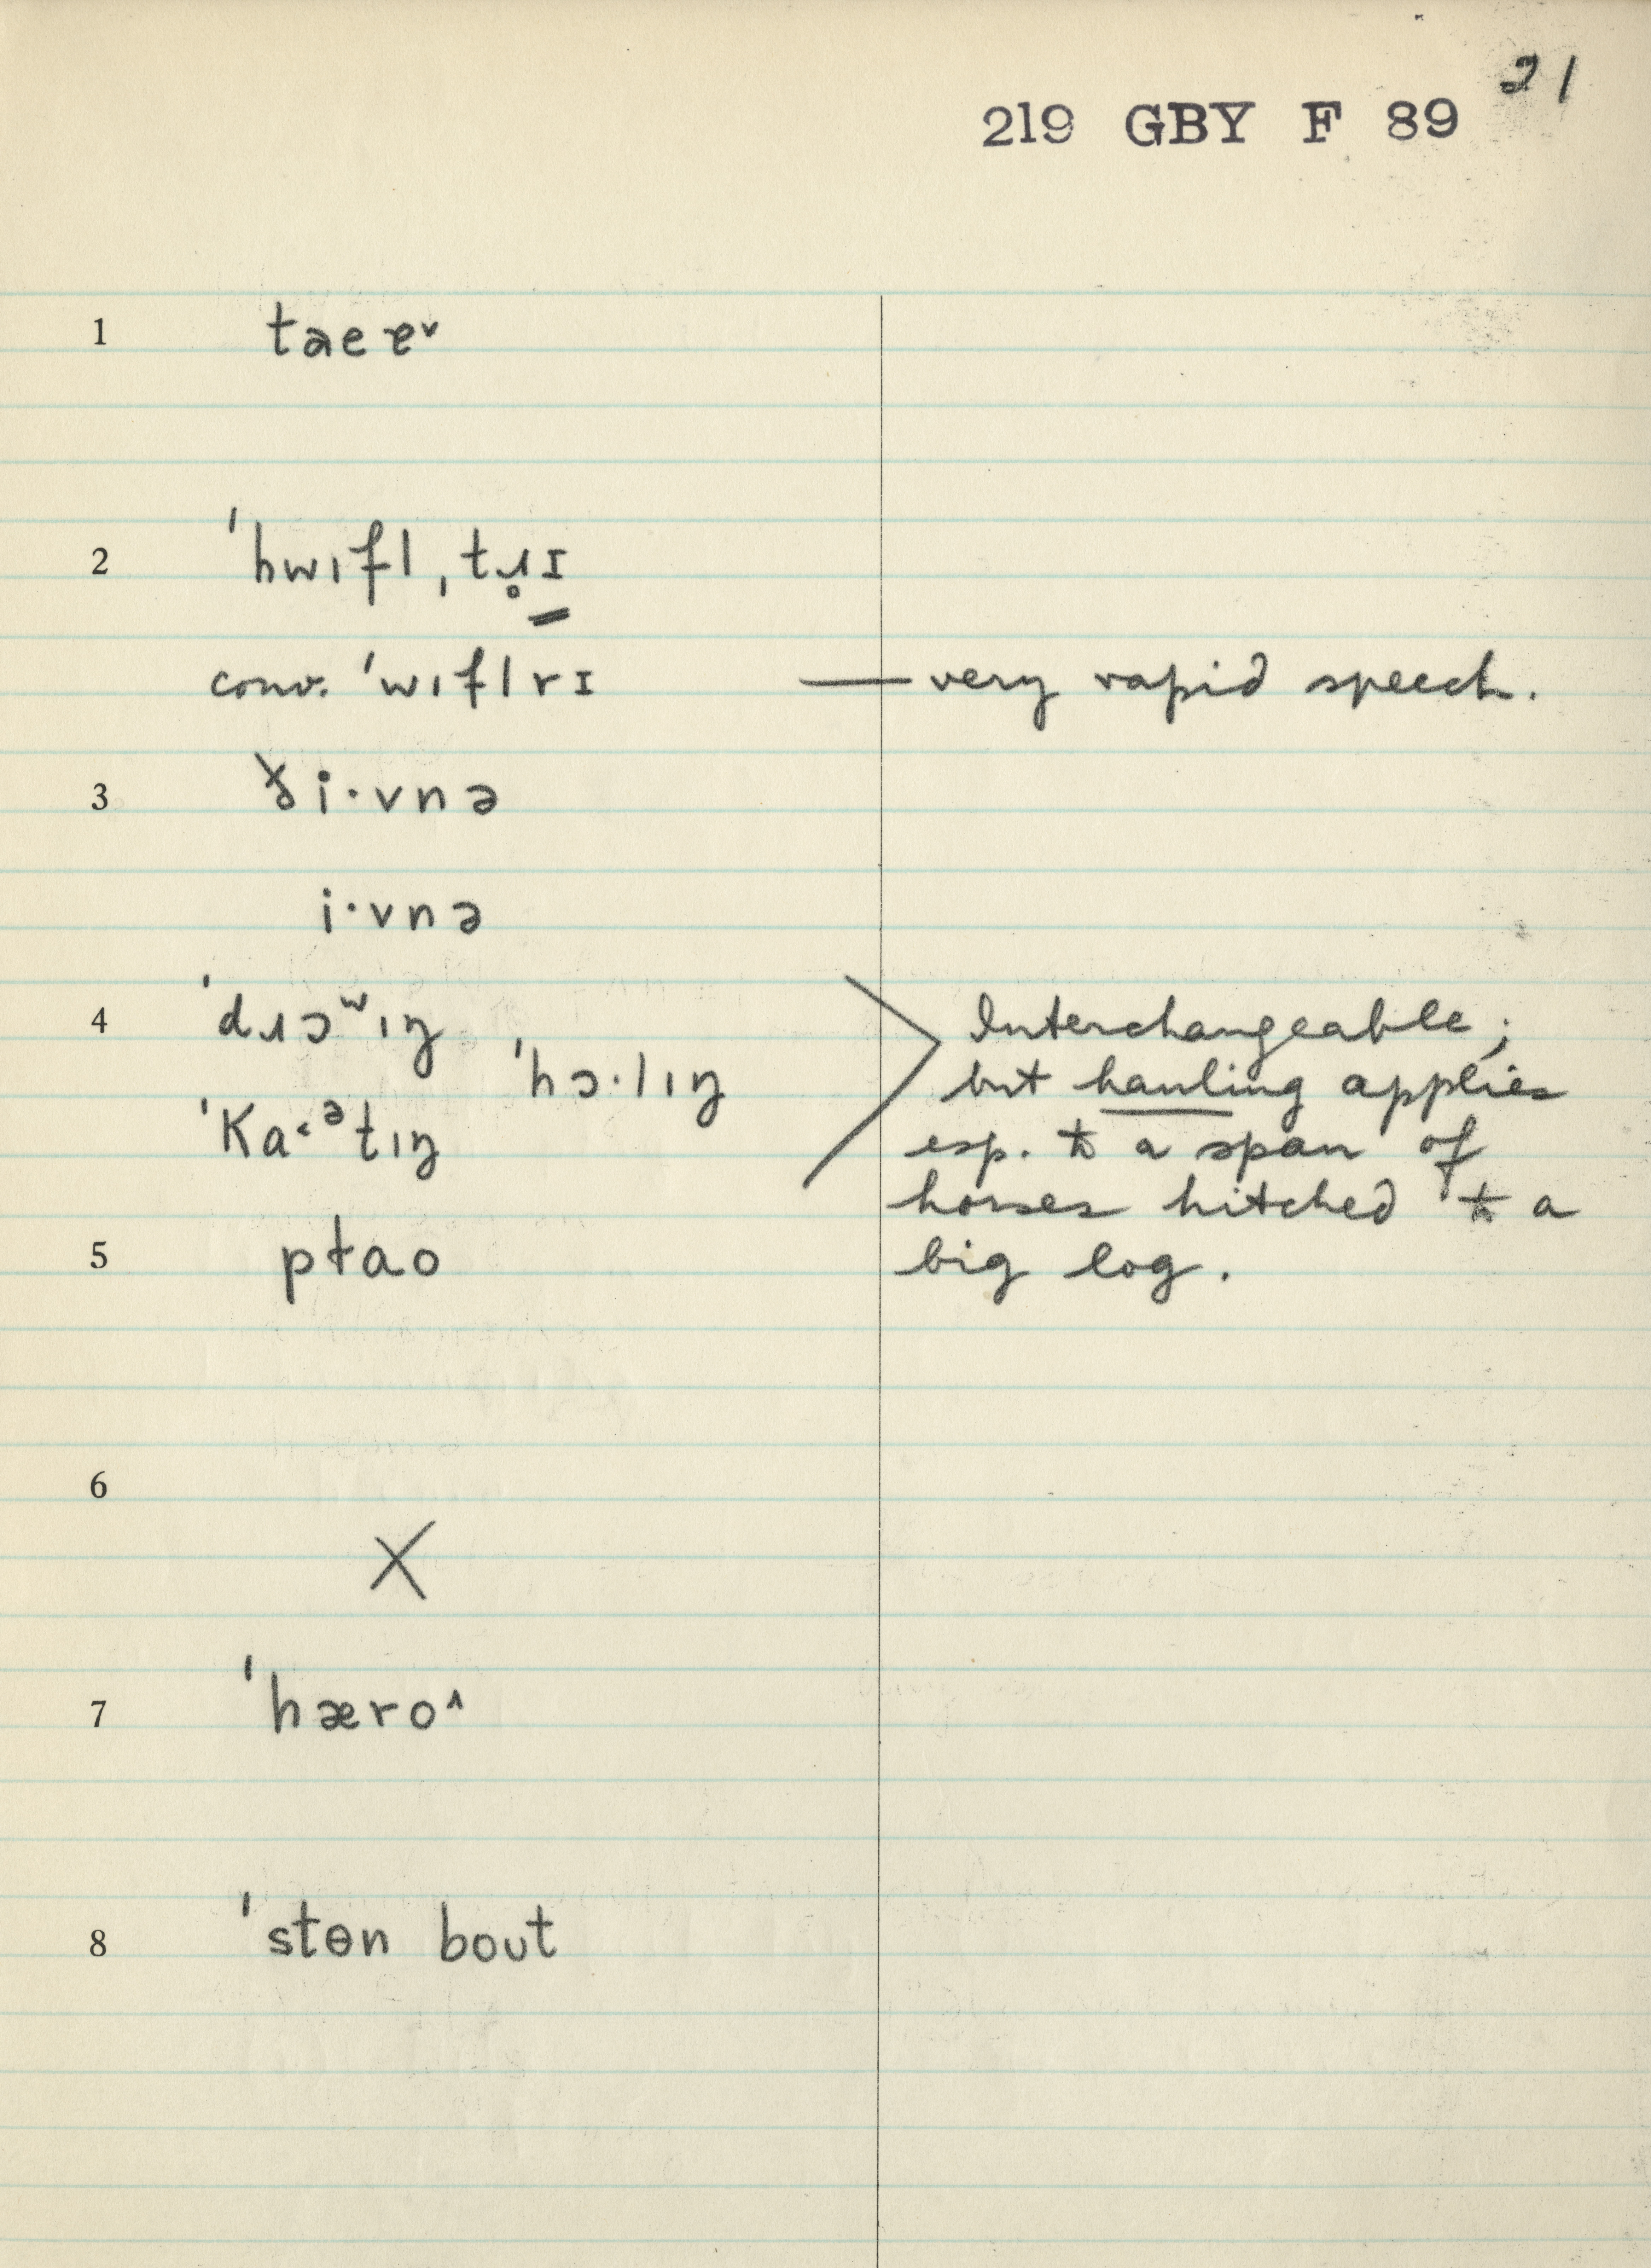 21
219 GBY F 89
1 taeɐ˅
2 ˈhwɪfl̩ˌtɹ̥ɪ
conv. ˈwɪflrɪ — very rapid speech.
3 i·vnə
i·vnə
4 ˈdɹɔʷɪŋ Interchangeable;
ˈhɔ·lɪŋ but hauling applies
ˈKa˂ᵊtɪŋ esp. to a span of
horses hitched to a
5 pɫao big log.
6
X
7 ˈhæro˄
8 ˈstɵn bout